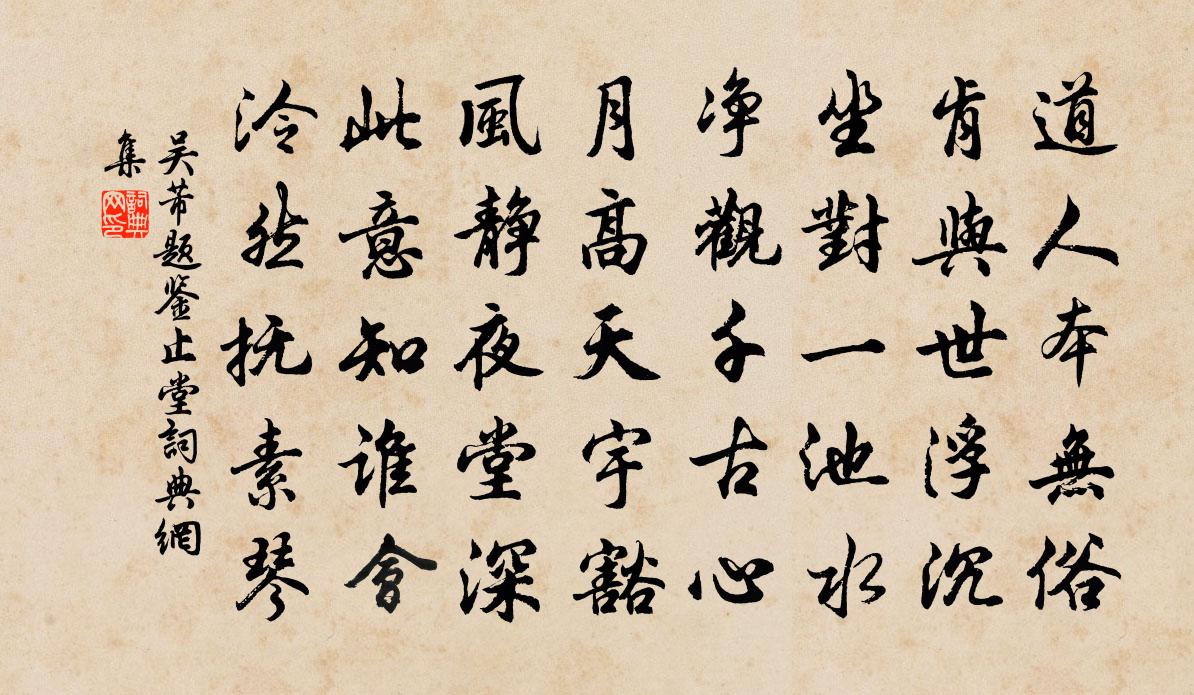 道人本無俗
肯與世浮沉
坐對一池水
净觀千古心
月高天宇豁
風静夜堂深
此意知誰會
泠然抚素琴
吴芾題鉴止堂詞典網
集
詞典网印